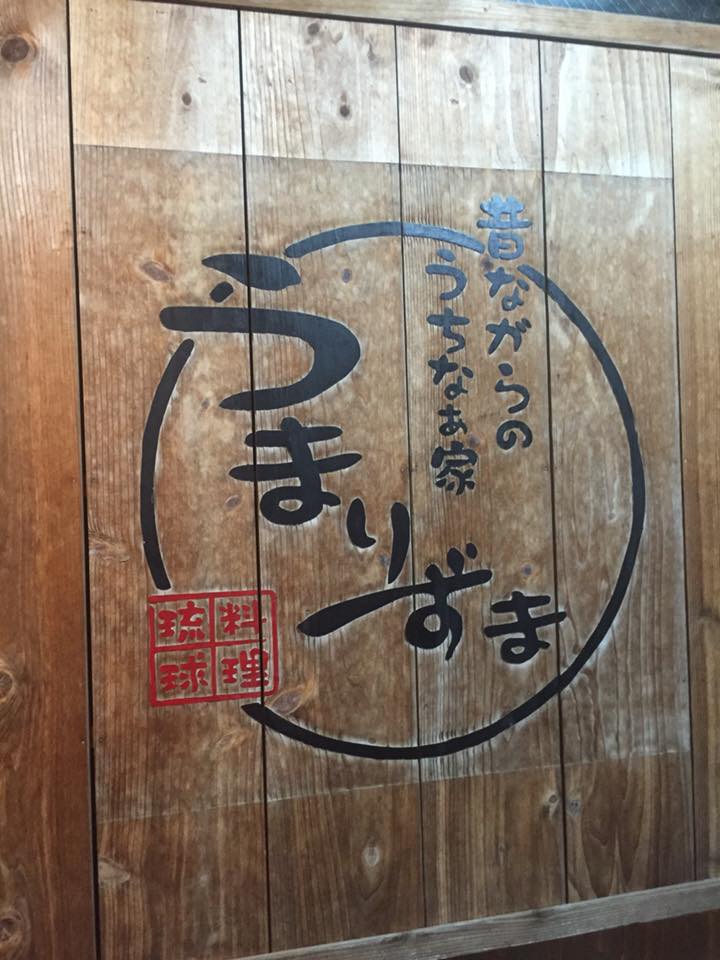 昔ながらの
うちなぁ家
うまりずま
琉球
料理